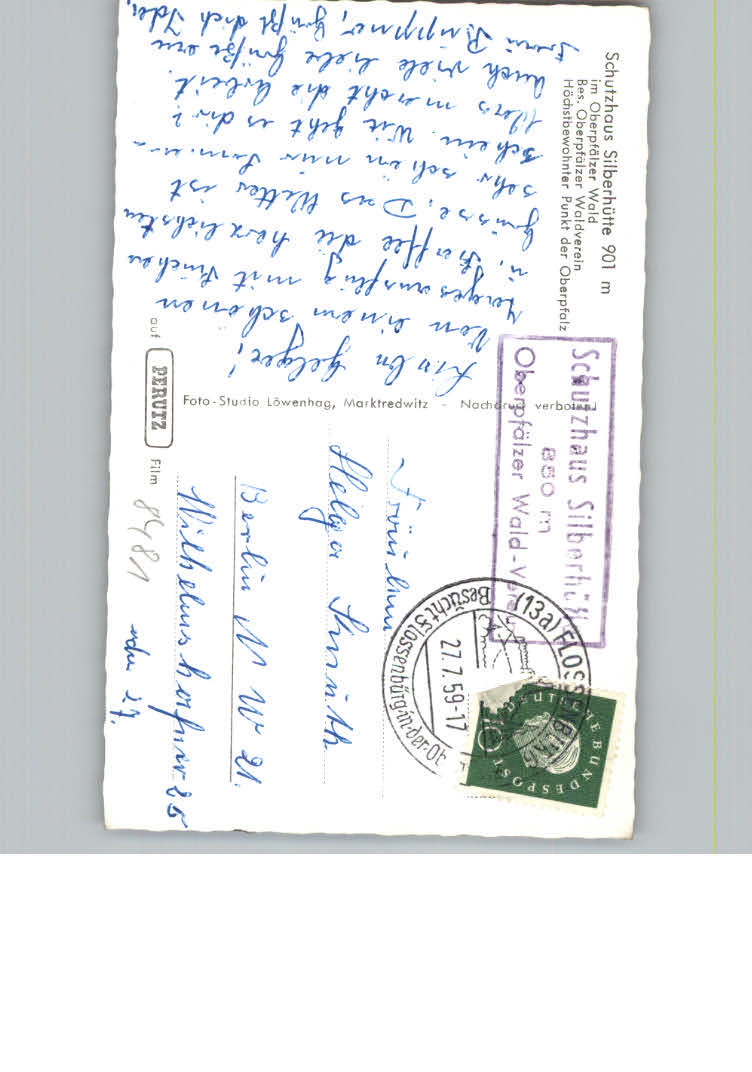 Schutzhaus Silberhütte 901 m
im Oberpfälzer Wald
Bes. Oberpfälzer Waldverein
Höchstbewohnter Punkt der Oberpfalz
Von einem schönen
Tagesausflug mit Kuchen
u. Kaffee die herzlichsten
Grüsse. Das Wetter ist
sehr schön nur Sonnen-
schein. Wie geht es dir?
Was macht die Arbeit.
Auch viele liebe Grüße an
grüßt dich Ida,
Foto-Studio Löwenhag, Marktredwitz - Nachdruck verboten!
auf PERUTZ Film
Schutzhaus Silberhüt
860 m
Oberpfälzer Wald-Verein
(13a) FLOSSENBÜRG
27.7.59-17
Besucht Flossenbürg in der Ob
DEUTSCHE BUNDESPOST
10
Fräulein
Helga
Berlin N W 21.
8481